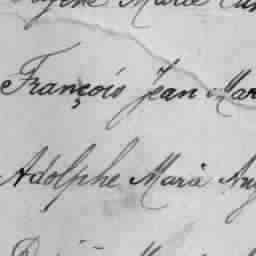 Eugène Marie
François Jean Mar
Adolphe Marie Aug